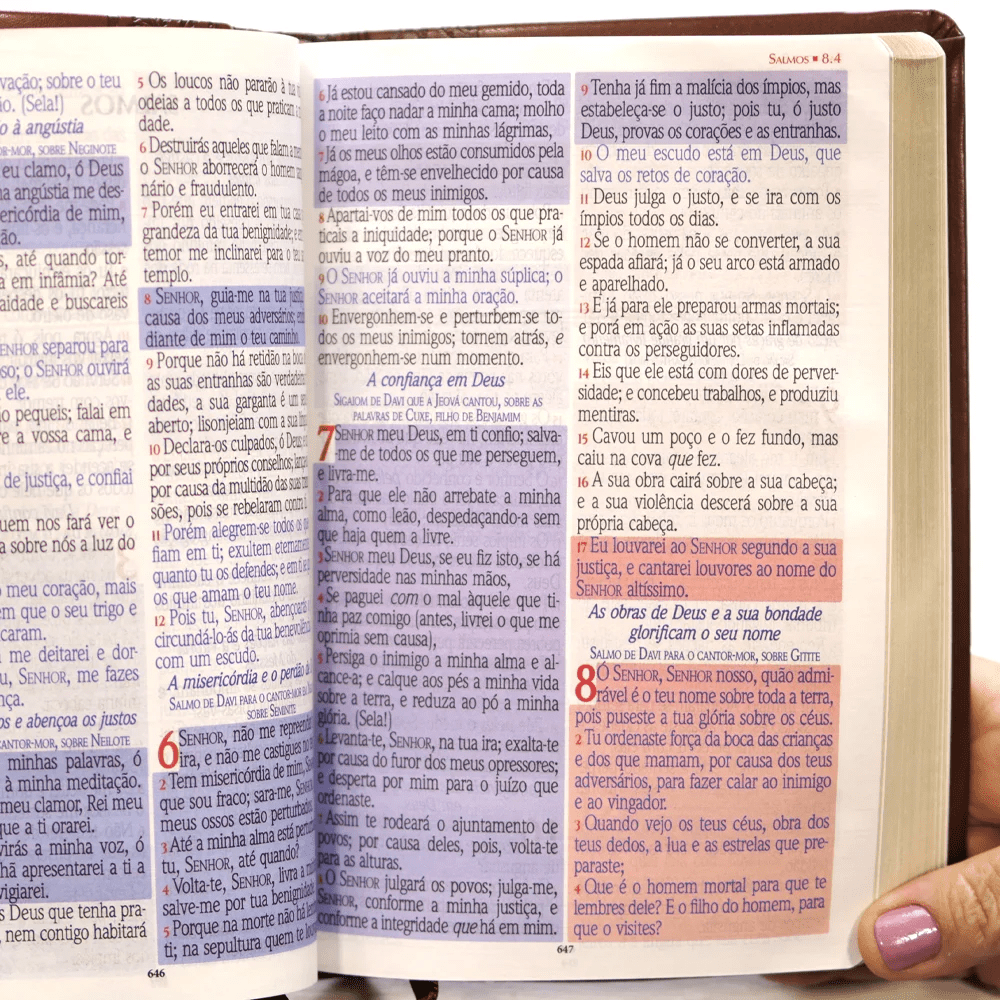 vação; sobre o teu
o. (Sela!)
o à angústia
OR-MOR, SOBRE NEGINOTE
eu clamo, ó Deus
a angústia me des-
ericórdia de mim,
ção.
s, até quando tor-
a em infâmia? Até
aidade e buscareis
ENHOR separou para
oso; o SENHOR ouvirá
ele.
o pequeis; falai em
re a vossa cama, e
de justiça, e confiai
uem nos fará ver o
a sobre nós a luz do
o meu coração, mais
em que o seu trigo e
caram.
me deitarei e dor-
u, SENHOR, me fazes
nça.
os e abençoa os justos
CANTOR-MOR, SOBRE NEILOTE
minhas palavras, ó
à minha meditação.
meu clamor, Rei meu
que a ti orarei.
virás a minha voz, ó
hã apresentarei a ti a
vigiarei.
s Deus que tenha pra-
, nem contigo habitará
5 Os loucos não pararão à tua
odeias a todos os que praticam a
dade.
6 Destruirás aqueles que falam a
o SENHOR aborrecerá o homem
nário e fraudulento.
7 Porém eu entrarei em tua casa
grandeza da tua benignidade; e
temor me inclinarei para o teu
templo.
8 SENHOR, guia-me na tua justiça
causa dos meus adversários;
diante de mim o teu caminho.
9 Porque não há retidão na boca
as suas entranhas são verdadei
dades, a sua garganta é um
aberto; lisonjeiam com a sua
10 Declara-os culpados, ó Deus
por seus próprios conselhos;
por causa da multidão das suas
sões, pois se rebelaram contra
11 Porém alegrem-se todos os
fiam em ti; exultem eternamente
quanto tu os defendes; e em ti
os que amam o teu nome.
12 Pois tu, SENHOR, abençoarás
circundá-lo-ás da tua benevolência
com um escudo.
A misericórdia e o perdão
SALMO DE DAVI PARA O CANTOR-MOR
SOBRE SEMINITE
6 SENHOR, não me repreendas
ira, e não me castigues no
2 Tem misericórdia de mim,
que sou fraco; sara-me, SENHOR
meus ossos estão perturbados
3 Até a minha alma está
tu, SENHOR, até quando?
4 Volta-te, SENHOR, livra a
salve-me por tua benignidade
5 Porque na morte não há
ti; na sepultura quem te
646
SALMOS ■ 8.4
6 Já estou cansado do meu gemido, toda
a noite faço nadar a minha cama; molho
o meu leito com as minhas lágrimas,
7 Já os meus olhos estão consumidos pela
mágoa, e têm-se envelhecido por causa
de todos os meus inimigos.
8 Apartai-vos de mim todos os que pra-
ticais a iniquidade; porque o SENHOR já
ouviu a voz do meu pranto.
9 O SENHOR já ouviu a minha súplica; o
SENHOR aceitará a minha oração.
10 Envergonhem-se e perturbem-se to-
dos os meus inimigos; tornem atrás, e
envergonhem-se num momento.
A confiança em Deus
SIGAIOM DE DAVI QUE A JEOVÁ CANTOU, SOBRE AS
PALAVRAS DE CUXE, FILHO DE BENJAMIM
7 SENHOR meu Deus, em ti confio; salva-
-me de todos os que me perseguem,
e livra-me.
2 Para que ele não arrebate a minha
alma, como leão, despedaçando-a sem
que haja quem a livre.
3 SENHOR meu Deus, se eu fiz isto, se há
perversidade nas minhas mãos,
4 Se paguei com o mal àquele que ti-
nha paz comigo (antes, livrei o que me
oprimia sem causa),
5 Persiga o inimigo a minha alma e al-
cance-a; e calque aos pés a minha vida
sobre a terra, e reduza ao pó a minha
glória. (Sela!)
6 Levanta-te, SENHOR, na tua ira; exalta-te
por causa do furor dos meus opressores;
e desperta por mim para o juízo que
ordenaste.
7 Assim te rodeará o ajuntamento de
povos; por causa deles, pois, volta-te
para as alturas.
8 O SENHOR julgará os povos; julga-me,
SENHOR, conforme a minha justiça, e
conforme a integridade que há em mim.
9 Tenha já fim a malícia dos ímpios, mas
estabeleça-se o justo; pois tu, ó justo
Deus, provas os corações e as entranhas.
10 O meu escudo está em Deus, que
salva os retos de coração.
11 Deus julga o justo, e se ira com os
ímpios todos os dias.
12 Se o homem não se converter, a sua
espada afiará; já o seu arco está armado
e aparelhado.
13 E já para ele preparou armas mortais;
e porá em ação as suas setas inflamadas
contra os perseguidores.
14 Eis que ele está com dores de perver-
sidade; e concebeu trabalhos, e produziu
mentiras.
15 Cavou um poço e o fez fundo, mas
caiu na cova que fez.
16 A sua obra cairá sobre a sua cabeça;
e a sua violência descerá sobre a sua
própria cabeça.
17 Eu louvarei ao SENHOR segundo a sua
justiça, e cantarei louvores ao nome do
SENHOR altíssimo.
As obras de Deus e a sua bondade
glorificam o seu nome
SALMO DE DAVI PARA O CANTOR-MOR, SOBRE GITITE
8 Ó SENHOR, SENHOR nosso, quão admi-
rável é o teu nome sobre toda a terra,
pois puseste a tua glória sobre os céus.
2 Tu ordenaste força da boca das crianças
e dos que mamam, por causa dos teus
adversários, para fazer calar ao inimigo
e ao vingador.
3 Quando vejo os teus céus, obra dos
teus dedos, a lua e as estrelas que pre-
paraste;
4 Que é o homem mortal para que te
lembres dele? E o filho do homem, para
que o visites?
647